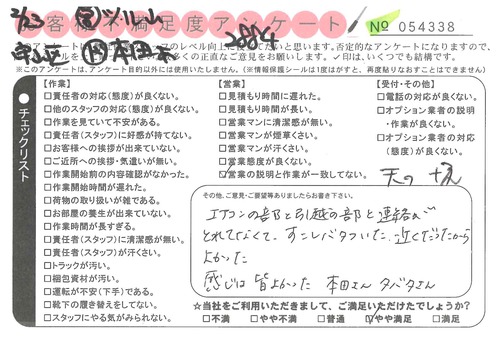 2/23
2884
お客様不満足度アンケート
№ 054338
守山区
本山
このアンケートは、アンケート目的以外には使用いたしません。(※情報保護シールは1度はがすと、再度貼りなおすことはできません)
チェックリスト
【作業】
□責任者の対応(態度)が良くない。
□他のスタッフの対応(態度)が良くない。
□作業を見ていて不安がある。
□責任者(スタッフ)に好感が持てない。
□お客様への挨拶が出来ていない。
□ご近所への挨拶・気遣いが無い。
□作業開始前の内容確認がなかった。
□作業開始時間が遅れた。
□荷物の取り扱いが雑である。
□お部屋の養生が出来ていない。
□作業時間が長すぎる。
□責任者(スタッフ)に清潔感が無い。
□責任者(スタッフ)が汗くさい。
□トラックが汚い。
□梱包資材が汚い。
□運転が不安(下手)である。
□靴下の履き替えをしてない。
□スタッフにやる気がみられない。
【営業】
□見積もり時間に遅れた。
□見積もり時間が長い。
□営業マンに清潔感が無い。
□営業マンが煙草くさい。
□営業マンが汗くさい。
□営業態度が良くない。
☑営業の説明と作業が一致してない。
【受付・その他】
□電話の対応が良くない。
□オプション業者の説明
・作業が良くない。
□オプション業者の対応
(態度)が良くない。
その他、ご意見・ご要望等ありましたらお書き下さい。
エアコンの部と引越の部と連絡が
とれてなくて、すこしバタついた、近くだったから
よかった
感じは 皆よかった 本田さん タバタさん
☆当社をご利用いただきまして、ご満足いただけたでしょうか?
□不満 □やや不満 □普通 ☑やや満足 □満足